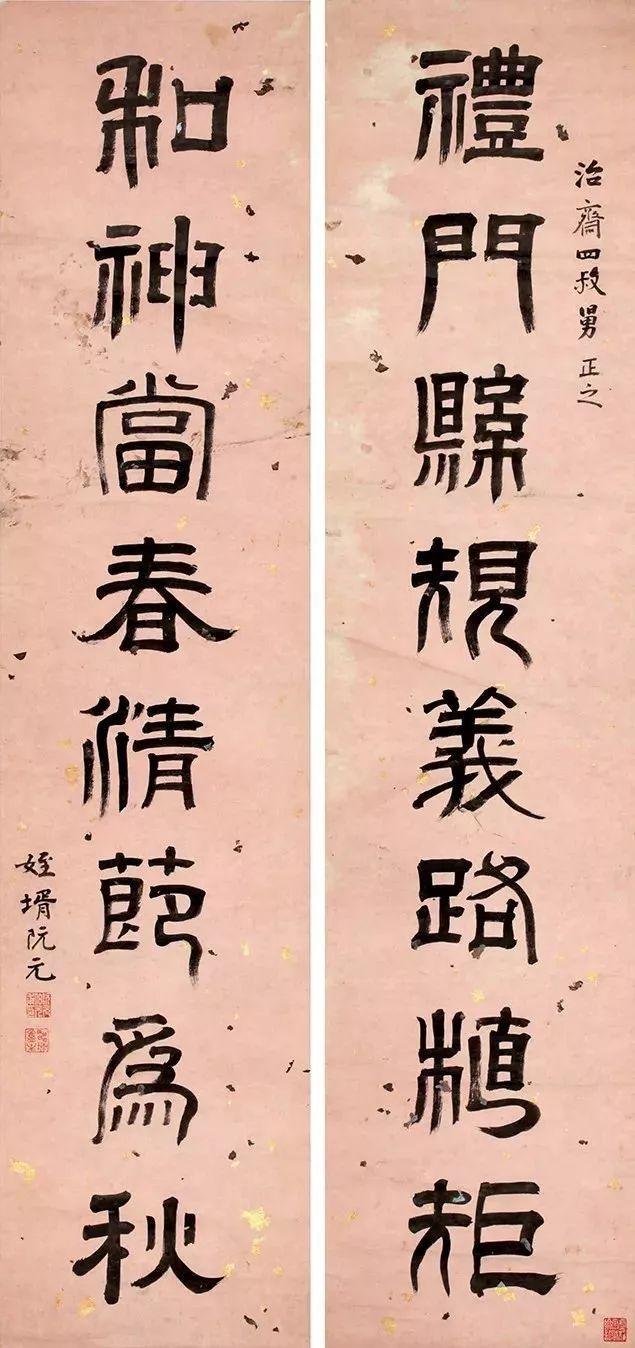 治齋四叔舅 正之
禮門縣規義路植矩
和神當春清節爲秋
姪壻阮元